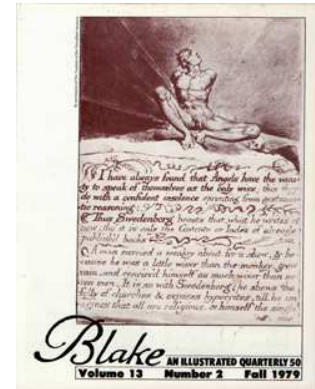 I have always found that Angels have the vani-
ty to speak of themselves as the only wise; this they
do with a confident insolence sprouting from systematic
reasoning:
Thus Swedenborg boasts that what he writes is
new; tho' it is only the Contents or Index of already
publish'd books
A man carried a monkey about for a shew, & be-
cause he was a little wiser than the monkey, grew
vain, and conciev'd himself as much wiser than se-
ven men. It is so with Swedenborg; he shews the
folly of churches & exposes hypocrites, till he im-
agines that all are religious, & himself the single
Blake AN ILLUSTRATED QUARTERLY 50
Volume 13 Number 2 Fall 1979